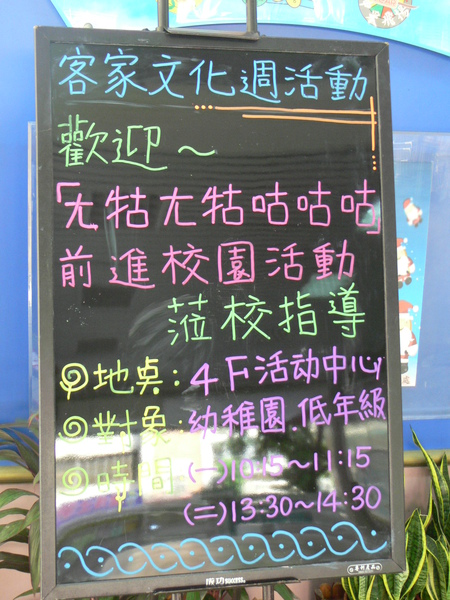 客家文化週活動
歡迎～
「尢牯尢牯咕咕咕」
前進校園活動
蒞校指導
地桌：4F活动中心
對象：幼稚園.低年級
時間 (一)10:15～11:15
(二)13:30～14:30
成功